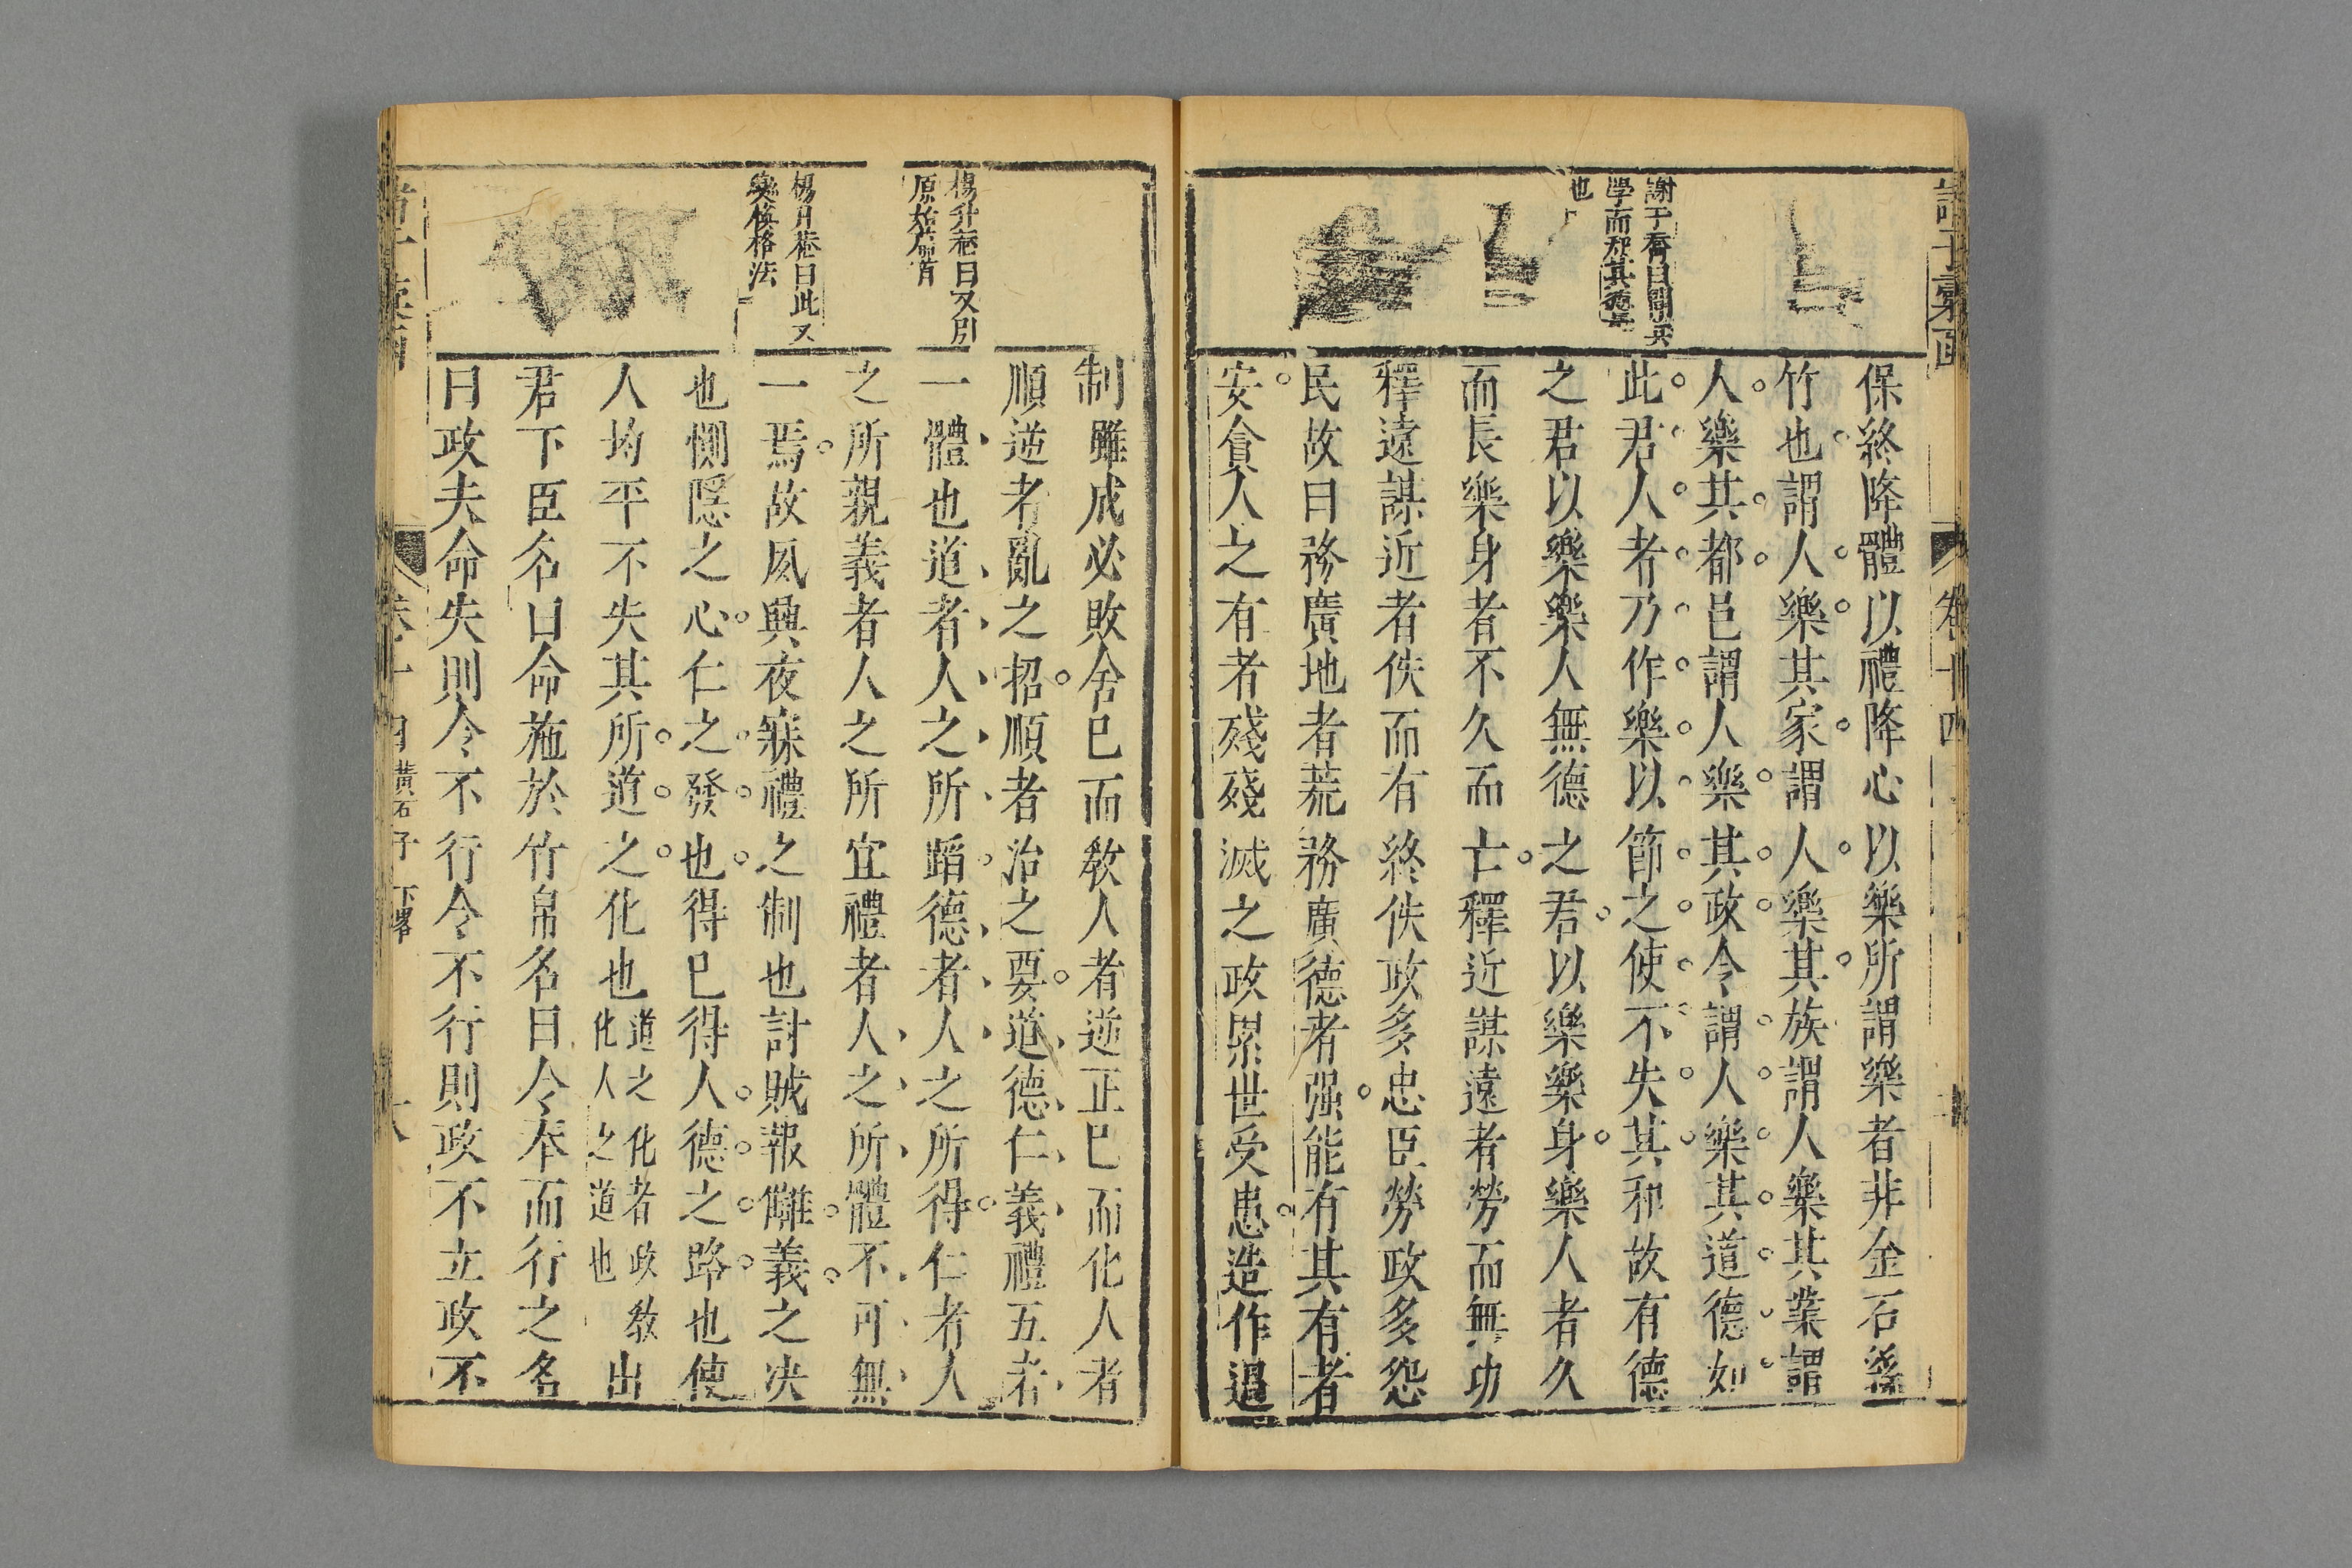 保終降體以禮降心以樂所謂樂者非金石絲
竹也謂人樂其家謂人樂其族謂人樂其業謂
人樂其都邑謂人樂其政令謂人樂其道德如
此君人者乃作樂以節之使不失其和故有德
之君以樂樂人無德之君以樂樂身樂人者久
而長樂身者不久而亡釋近謀遠者勞而無功
釋遠謀近者佚而有終佚政多忠臣勞政多怨
民故曰務廣地者荒務廣德者强能有其有者
安貪人之有者殘殘滅之政累世受患造作過
謝于喬曰
學而
也
卷十四
制雖成必敗舍巳而教人者逆正巳而化人者
順逆者亂之招順者治之要道德仁義禮五者
一體也道者人之所蹈德者人之所得仁者人
之所親義者人之所宜禮者人之所體不可無
一焉故夙興夜寐禮之制也討賊報讎義之决
也惻隱之心仁之發也得巳得人德之路也使
人均平不失其所道之化也道之化者政敎化人之道也出
君下臣名曰命施於竹帛名曰令奉而行之名
曰政夫命失則令不行令不行則政不立政不
楊升菴曰又引
原始
楊升菴曰此又
格法
黃石子 下畧